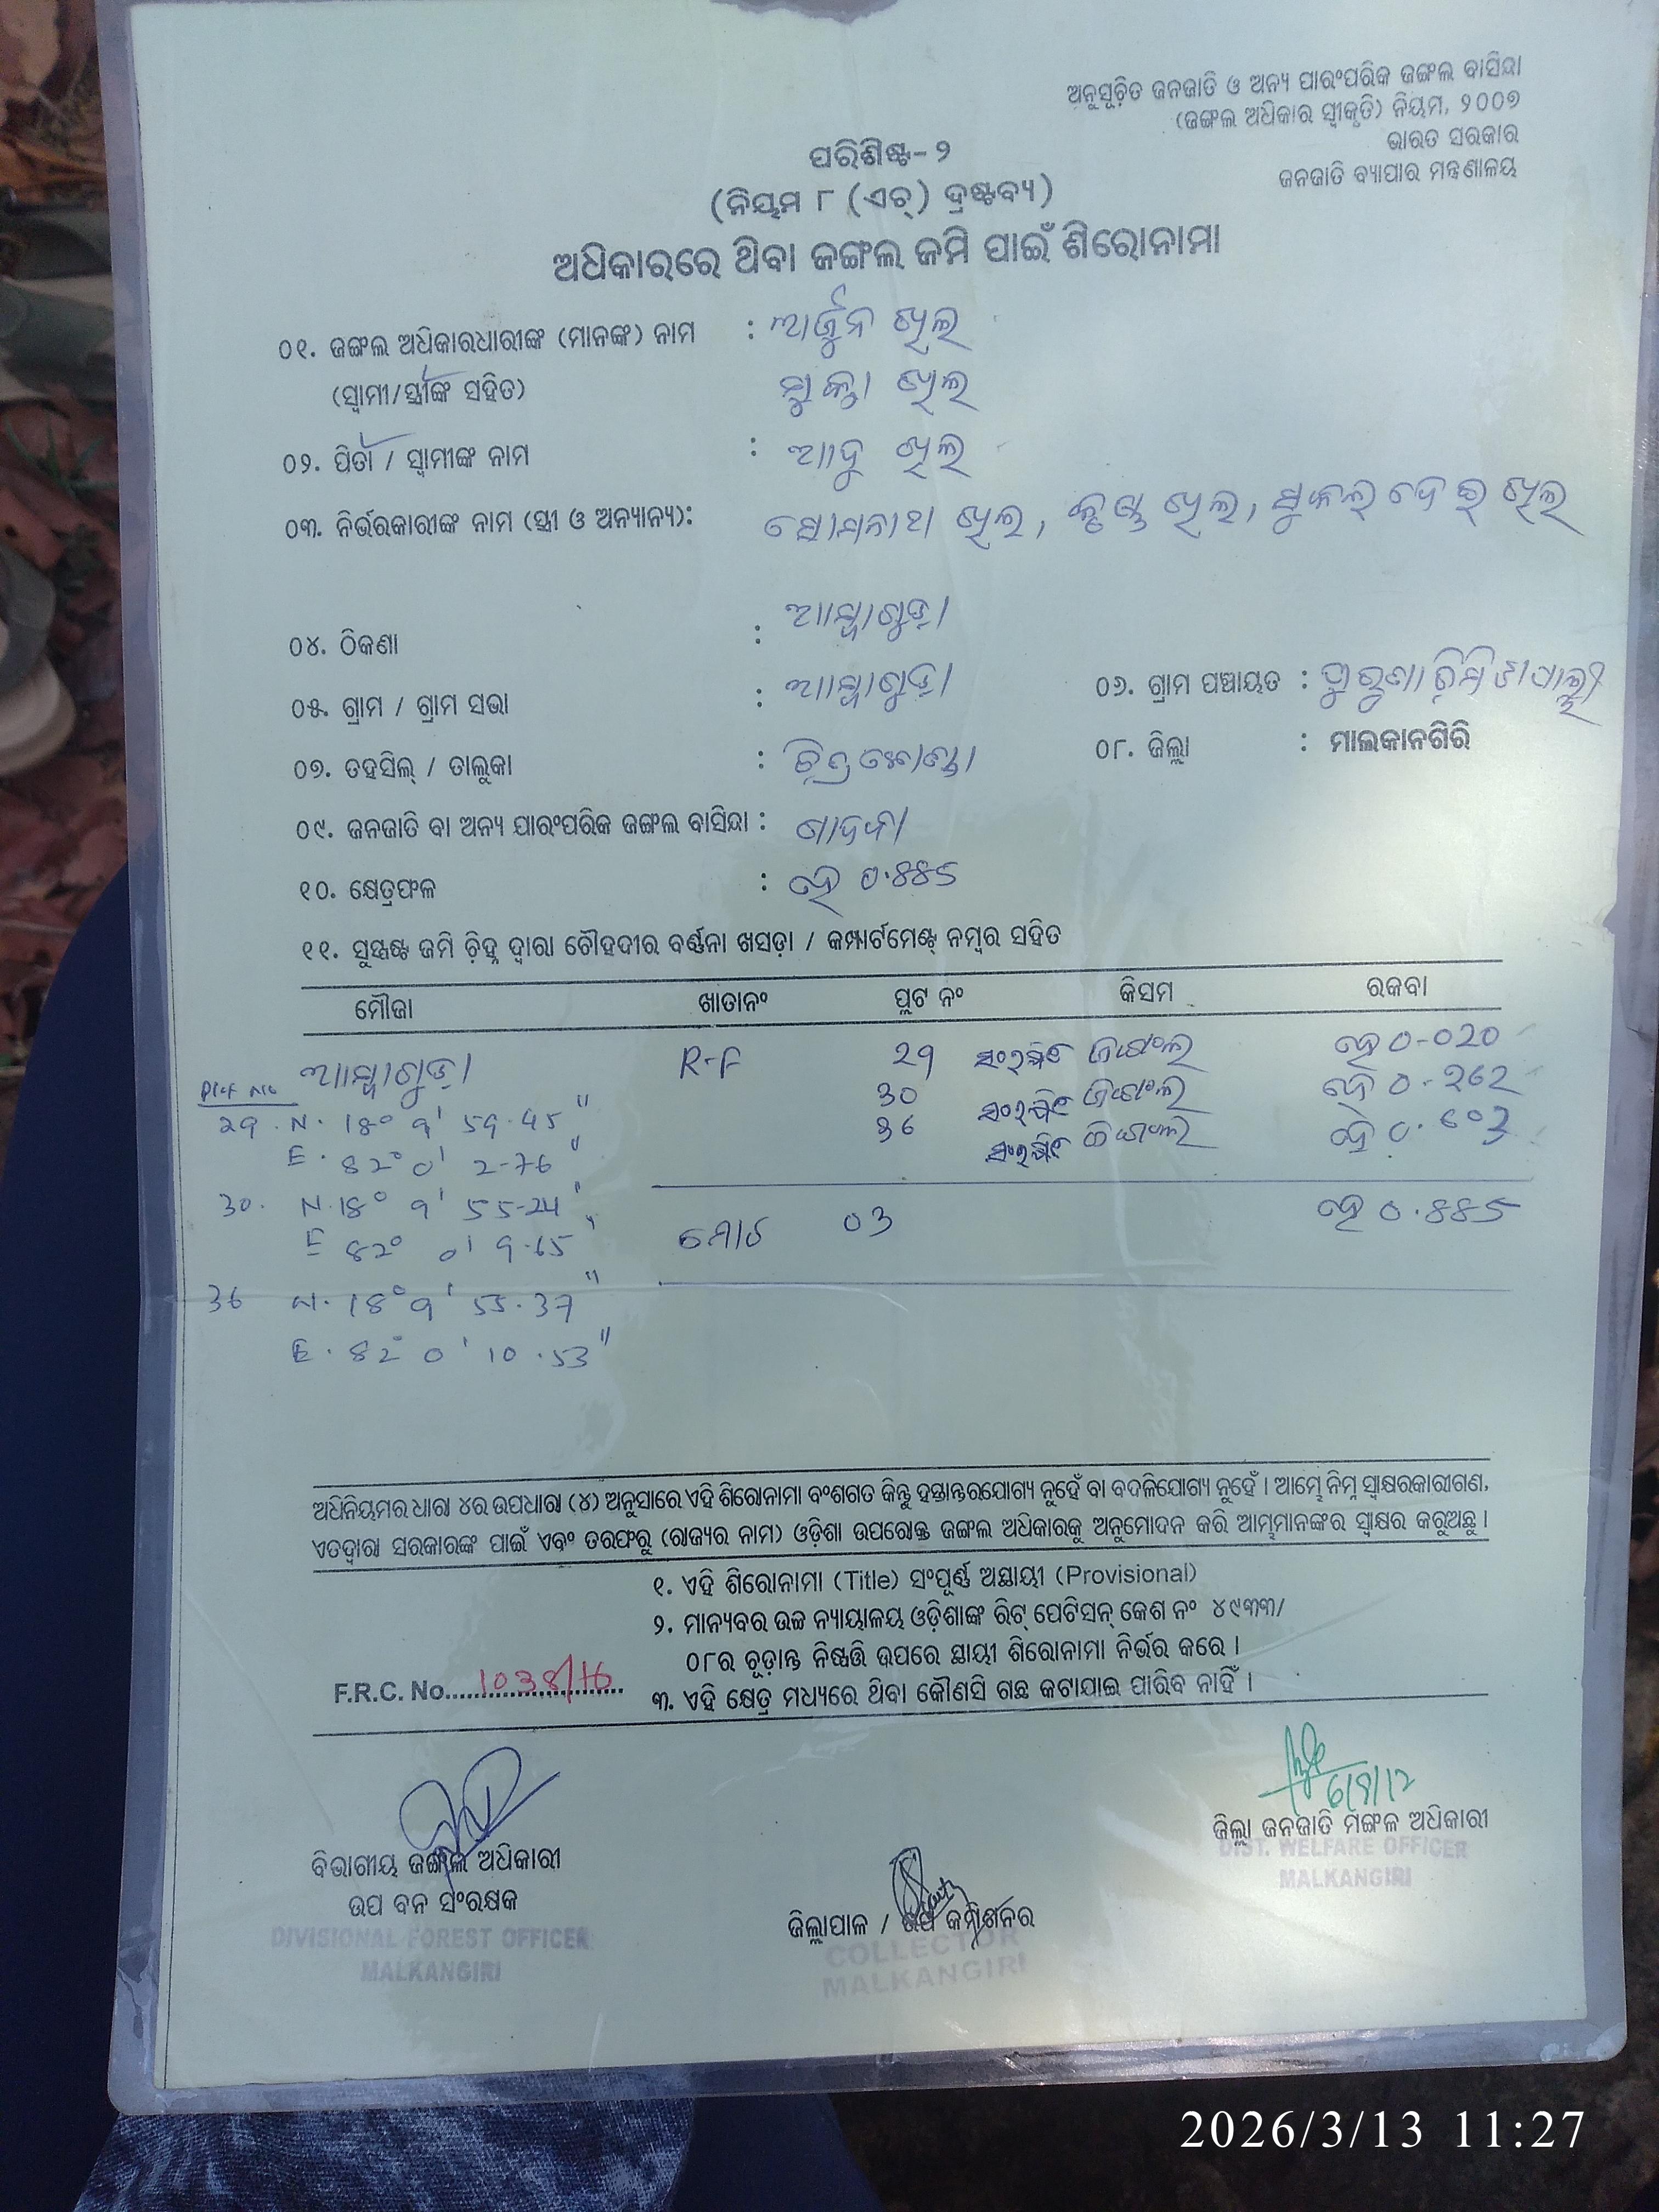 ଅନୁସୂଚିତ ଜନଜାତି ଓ ଅନ୍ୟ ପାରଂପରିକ ଜଙ୍ଗଲ ବାସିନ୍ଦା
(ଜଙ୍ଗଲ ଅଧିକାର ସ୍ୱୀକୃତି) ନିୟମ, ୨୦୦୭
ଭାରତ ସରକାର
ଜନଜାତି ବ୍ୟାପାର ମନ୍ତ୍ରଣାଳୟ
ପରିଶିଷ୍ଟ-୨
(ନିୟମ ୮ (ଏଚ୍) ଦ୍ରଷ୍ଟବ୍ୟ)
ଅଧିକାରରେ ଥିବା ଜଙ୍ଗଲ ଜମି ପାଇଁ ଶିରୋନାମା
୦୧. ଜଙ୍ଗଲ ଅଧିକାରଧାରୀଙ୍କ (ମାନଙ୍କ) ନାମ : ଆର୍ଜୁନ ଖିଲ
(ସ୍ୱାମୀ/ସ୍ତ୍ରୀଙ୍କ ସହିତ) ମୁକ୍ତା ଖିଲ
୦୨. ପିତା / ସ୍ୱାମୀଙ୍କ ନାମ : ଆଦୁ ଖିଲ
୦୩. ନିର୍ଭରକାରୀଙ୍କ ନାମ (ସ୍ତ୍ରୀ ଓ ଅନ୍ୟାନ୍ୟ): ସୋମନାଥ ଖିଲ, କୃଷ୍ଣ ଖିଲ, ସୁକଲ୍ ଦେଇ ଖିଲ
୦୪. ଠିକଣା : ଆମ୍ବାଗୁଡ଼ା
୦୫. ଗ୍ରାମ / ଗ୍ରାମ ସଭା : ଆମ୍ବାଗୁଡ଼ା ୦୬. ଗ୍ରାମ ପଞ୍ଚାୟତ :
୦୭. ତହସିଲ୍ / ତାଲୁକା : ଚିତ୍ରକୋଣ୍ଡା ୦୮. ଜିଲ୍ଲା : ମାଲକାନଗିରି
୦୯. ଜନଜାତି ବା ଅନ୍ୟ ପାରଂପରିକ ଜଙ୍ଗଲ ବାସିନ୍ଦା : ଗାଦବା
୧୦. କ୍ଷେତ୍ରଫଳ : ହେ 0.885
୧୧. ସୁସ୍ପଷ୍ଟ ଜମି ଚିହ୍ନ ଦ୍ୱାରା ଚୌହଦୀର ବର୍ଣ୍ଣନା ଖସଡ଼ା / କମ୍ପାର୍ଟମେଣ୍ଟ୍ ନମ୍ବର ସହିତ
ମୌଜା ଖାତାନଂ ପ୍ଲଟ ନଂ କିସମ ରକବା
ଆମ୍ବାଗୁଡ଼ା R-F 29 ସଂରକ୍ଷିତ ଜଙ୍ଗଲ ହେ 0-020
30 ସଂରକ୍ଷିତ ଜଙ୍ଗଲ ହେ 0-262
36 ସଂରକ୍ଷିତ ଜଙ୍ଗଲ ହେ 0.603
Plot No
29. N. 18° 9' 59.45"
E. 82° 0' 2-76"
30. N.18° 9' 55-24"
E 82° 0' 9.65"
36 N. 18° 9' 55.37"
E. 82° 0' 10.53"
ମୋଟ 03 ହେ 0.885
ଅଧିନିୟମର ଧାରା ୪ର ଉପଧାରା (୪) ଅନୁସାରେ ଏହି ଶିରୋନାମା ବଂଶଗତ କିନ୍ତୁ ହସ୍ତାନ୍ତରଯୋଗ୍ୟ ନୁହେଁ ବା ବଦଳିଯୋଗ୍ୟ ନୁହେଁ । ଆମ୍ଭେ ନିମ୍ନ ସ୍ୱାକ୍ଷରକାରୀଗଣ,
ଏତଦ୍ଦ୍ୱାରା ସରକାରଙ୍କ ପାଇଁ ଏବଂ ତରଫରୁ (ରାଜ୍ୟର ନାମ) ଓଡ଼ିଶା ଉପରୋକ୍ତ ଜଙ୍ଗଲ ଅଧିକାରକୁ ଅନୁମୋଦନ କରି ଆମ୍ଭମାନଙ୍କର ସ୍ୱାକ୍ଷର କରୁଅଛୁ ।
୧. ଏହି ଶିରୋନାମା (Title) ସଂପୂର୍ଣ୍ଣ ଅସ୍ଥାୟୀ (Provisional)
୨. ମାନ୍ୟବର ଉଚ୍ଚ ନ୍ୟାୟାଳୟ ଓଡ଼ିଶାଙ୍କ ରିଟ୍ ପେଟିସନ୍ କେଶ ନଂ ୪୯୩୩/
୦୮ର ଚୂଡ଼ାନ୍ତ ନିଷ୍ପତ୍ତି ଉପରେ ସ୍ଥାୟୀ ଶିରୋନାମା ନିର୍ଭର କରେ ।
୩. ଏହି କ୍ଷେତ୍ର ମଧ୍ୟରେ ଥିବା କୌଣସି ଗଛ କଟାଯାଇ ପାରିବ ନାହିଁ ।
F.R.C. No. 1038/16
6/9/12
ବିଭାଗୀୟ ଜଙ୍ଗଲ ଅଧିକାରୀ
ଉପ ବନ ସଂରକ୍ଷକ
DIVISIONAL FOREST OFFICER
MALKANGIRI
ଜିଲ୍ଲାପାଳ / ଉପ କମିଶନର
COLLECTOR
MALKANGIRI
ଜିଲ୍ଲା ଜନଜାତି ମଙ୍ଗଳ ଅଧିକାରୀ
DIST. WELFARE OFFICER
MALKANGIRI
2026/3/13 11:27